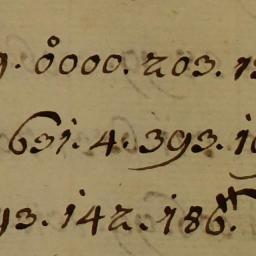 9. 0000. 203. 1
631. 4. 393. 1
93. 142. 186.